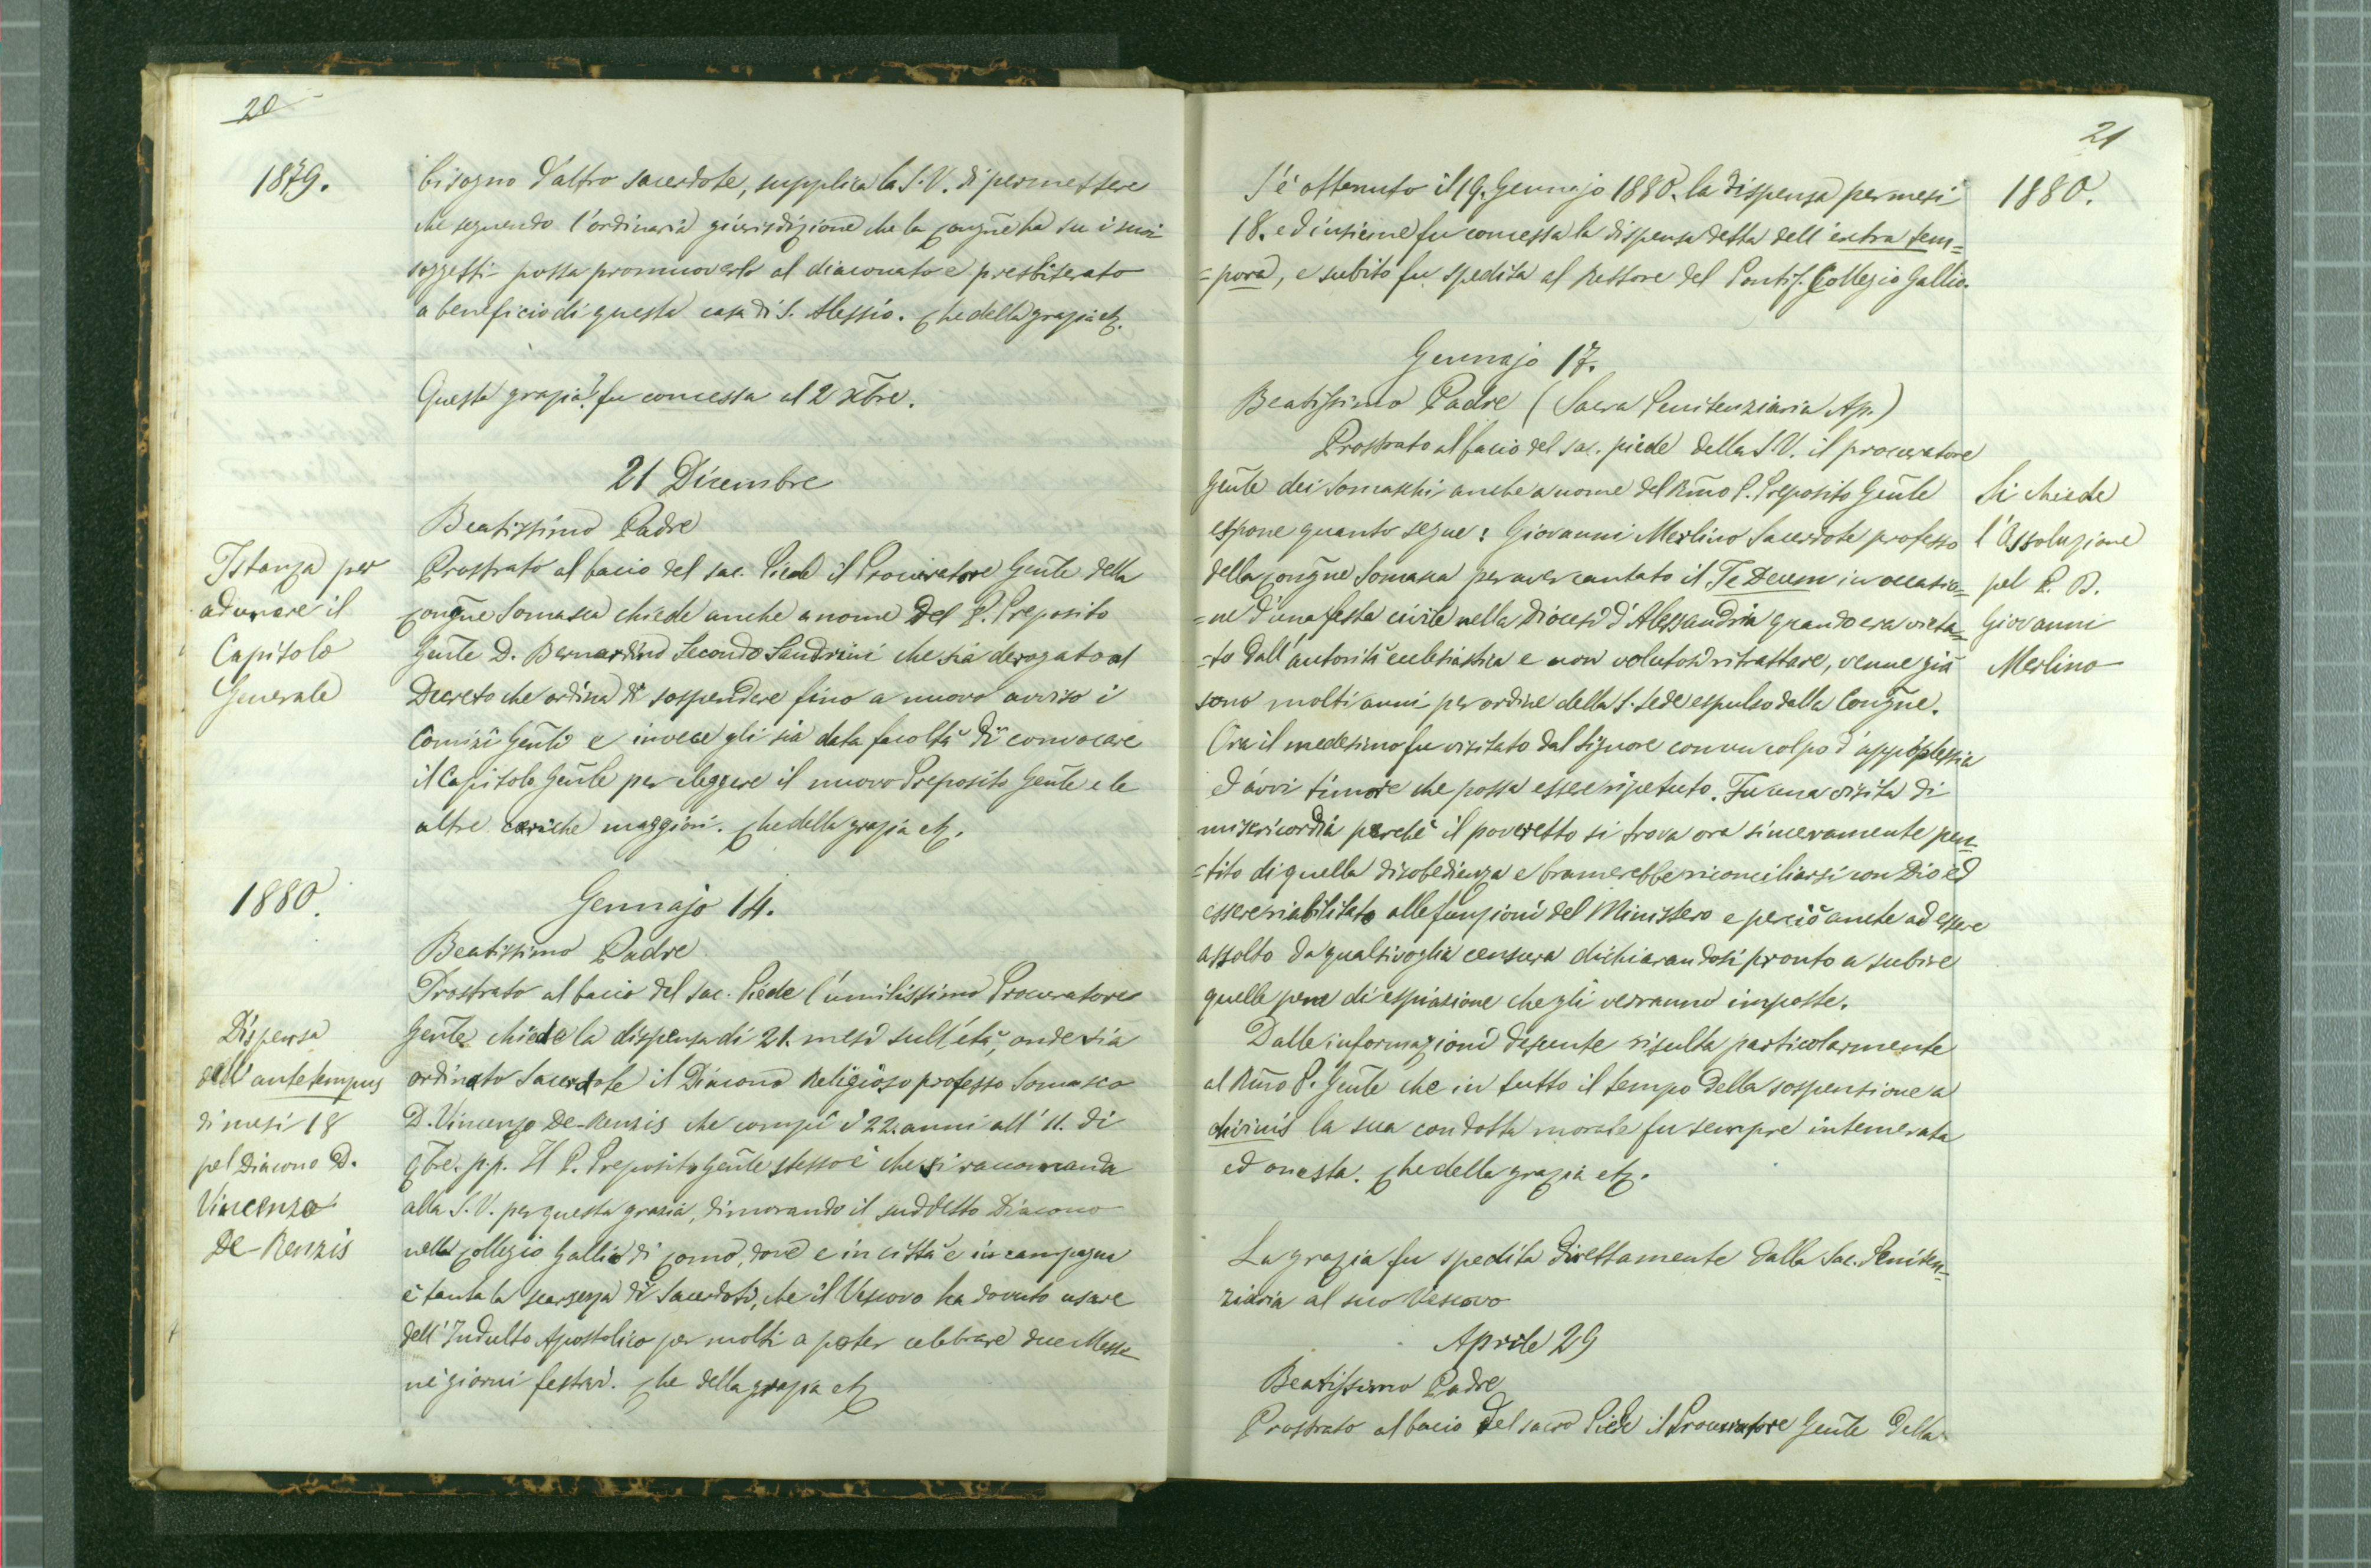 20
1879.
bisogno d'altro sacerdote, supplica la S. V. di permettere
che seguendo l'ordinaria giurisdizione che la Congñe ha su i suoi
soggetti possa promuoverlo al diaconato e presbiterato
a beneficio di questa casa di S. Alessio. Che della grazia etz.
Questa grazia fu concessa il 2 Xbre.
21 Dicembre
Beatissimo Padre
Istanza per
adunare il
Capitolo
Generale
Prostrato al bacio del sac. Piede il Procuratore Genle della
Congñe Somasca chiede anche a nome del P. Preposito
Genle D. Bernardino Secondo Sandrini che sia derogato al
Decreto che ordina di sospendere fino a nuovo avviso i
Comizi Genli e invece gli sia data facoltà di convocare
il Capitolo Genle per eleggere il nuovo Preposito Genle e le
altre cariche maggiori. Che della grazia etz.
1880.
Gennajo 14.
Beatissimo Padre
Dispensa
dell'antetempus
di mesi 18
pel Diacono D.
Vincenzo
De-Renzis
Prostrato al bacio del Sac. Piede l'umilissimo Procuratore
Genle chiede la dispensa di 21. mesi sull'età, onde sia
ordinato Sacerdote il Diacono Religioso professo Somasco
D. Vincenzo De-Renzis che compì i 22. anni all' 11. di
9bre. p.p. Il P. Preposito Genle stesso è che si raccomanda
alla S. V. per questa grazia, dimorando il suddetto Diacono
nel Collegio Gallio di Como, dove e in città e in campagna
è tanta la scarsezza di Sacerdoti, che il Vescovo ha dovuto usare
dell'Indulto Apostolico per molti a poter celebrare due Messe
nei giorni festivi. Che della grazia etz
21
1880.
S'è ottenuto il 19. Gennajo 1880. la dispensa per mesi
18. ed insieme fu concessa la dispensa detta dell'extra tem=
=pora, e subito fu spedita al Rettore del Pontif. Collegio Gallio.
Gennajo 17.
Beatissimo Padre (Sacra Penitenziaria Ap.)
Si chiede
l'Assoluzione
pel P. D.
Giovanni
Merlino
Prostrato al bacio del sac. piede della S. V. il procuratore
Genle dei Somaschi anche a nome del Rm̃o P. Preposito Genle
espone quanto segue: Giovanni Merlino Sacerdote professo
della Congñe Somasca per aver cantato il Te Deum in occasio=
=ne d'una festa civile nella Diocesi d'Alessandria quando era vieta=
=to dall'autorità ecclesiastica e non volutosi ritrattare, venne già
sono molti anni per ordine della S. Sede espulso dalla Congñe.
Ora il medesimo fu visitato dal Signore con un colpo d'appoplessia
ed avvi timore che possa essere ripetuto. Fu una visita di
misericordia perchè il poveretto si trova ora sinceramente pen=
=tito di quella disobedienza e bramerebbe riconciliarsi con Dio ed
essere riabilitato alle funzioni del Ministero e perciò anche ad essere
assolto da qualsivoglia censura dichiarandosi pronto a subire
quelle pene di espiazione che gli verranno imposte.
Dalle informazioni desunte risulta particolarmente
al Rm̃o P. Genle che in tutto il tempo della sospensione a
divinis la sua condotta morale fu sempre intemerata
ed onesta. Che della grazia etz.
La grazia fu spedita direttamente dalla Sac. Peniten=
ziaria al suo Vescovo
Aprile 29
Beatissimo Padre
Prostrato al bacio del sacro Piede il Procuratore Genle della